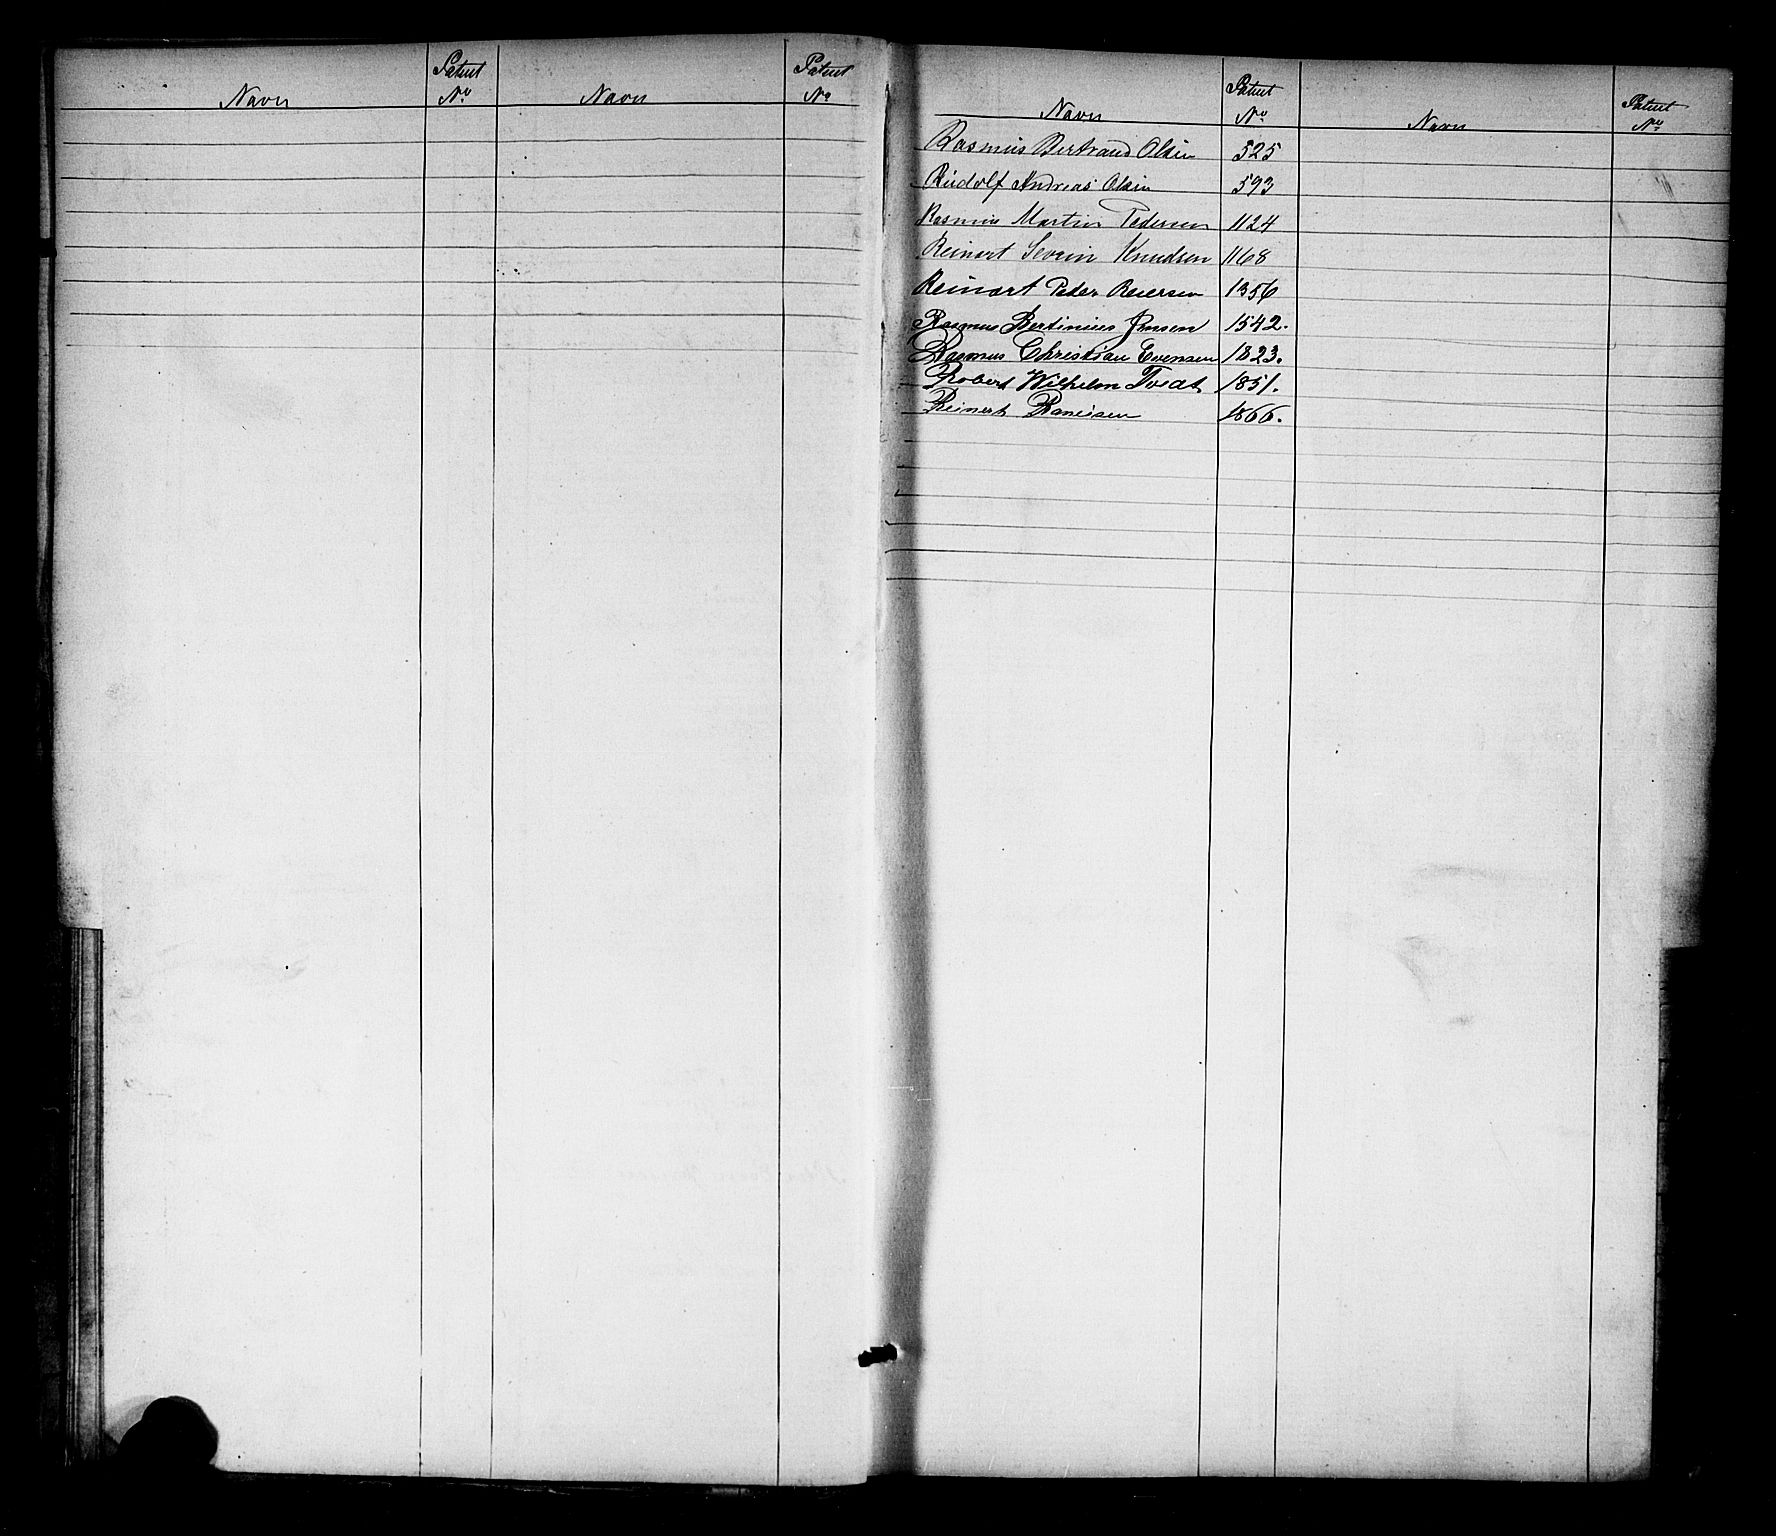 Navn Patent No Navn Patent No
Navn Patent No Navn Patent No
Rasmus Bertrand Olsen 525
Rudolf Andreas Olsen 593
Rasmus Martin Pedersen 1124
Reinart Severin Knudsen 1168
Reinart Peder Reiersen 1356
Rasmus Bertinius Jensen 1542.
Rasmus Christian Evensen 1823.
Robert Wilhelm Tveat 1851.
Reinert 1866.